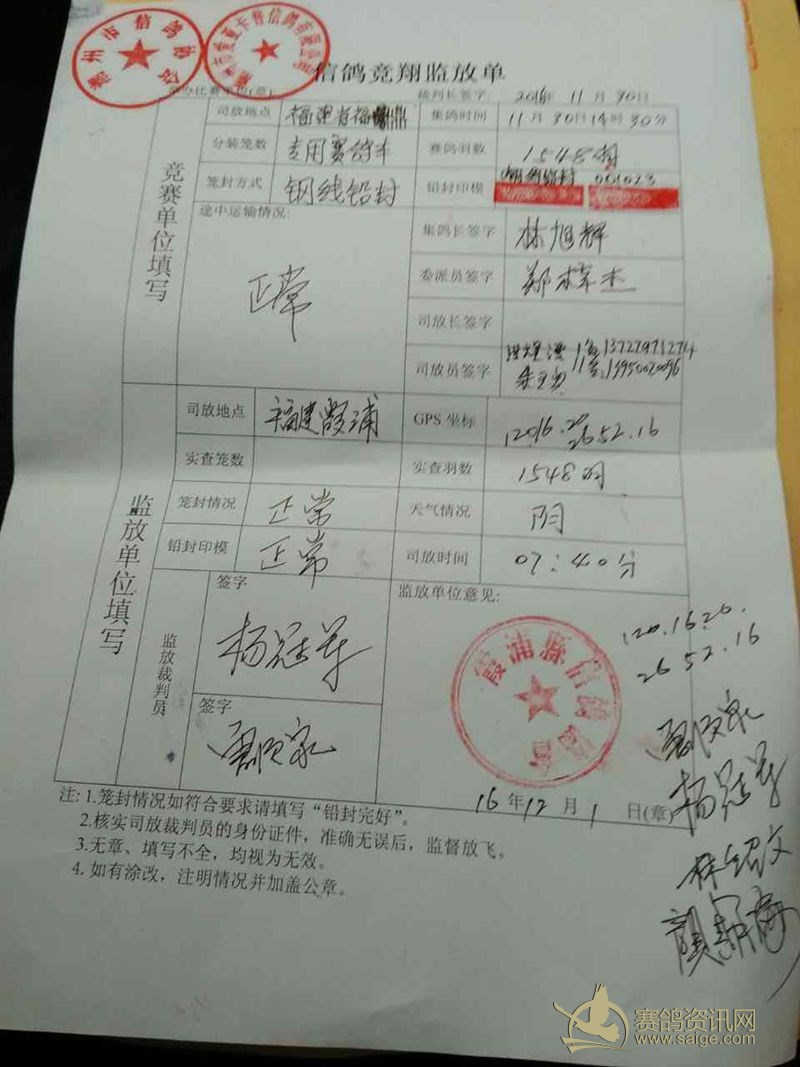 信鸽竞翔监放单
裁判长签字: 2016年 11月 30日
竞赛单位填写
司放地点 福建省福鼎 集鸽时间 11月30日14时30分
分装笼数 专用赛鸽车 赛鸽羽数 1548羽
笼封方式 钢线铅封 铅封印模 001023
途中运输情况: 正常
集鸽长签字 林旭辉
委派员签字
司放长签字
司放员签字 13727971274
13950020096
监放单位填写
司放地点 福建霞浦 GPS 坐标 12016.20
2652.16
实查笼数 实查羽数 1548羽
笼封情况 正常 天气情况 阴
铅封印模 正常 司放时间 07:40分
监放裁判员
签字 杨冠军
签字
监放单位意见:
霞浦县信鸽协会
16年12月1日(章)
120.16.20.
26 52.16
杨冠军
注: 1.笼封情况如符合要求请填写“铅封完好”。
2.核实司放裁判员的身份证件,准确无误后,监督放飞。
3.无章、填写不全,均视为无效。
4.如有涂改,注明情况并加盖公章。
赛鸽资讯网
www.saige.com